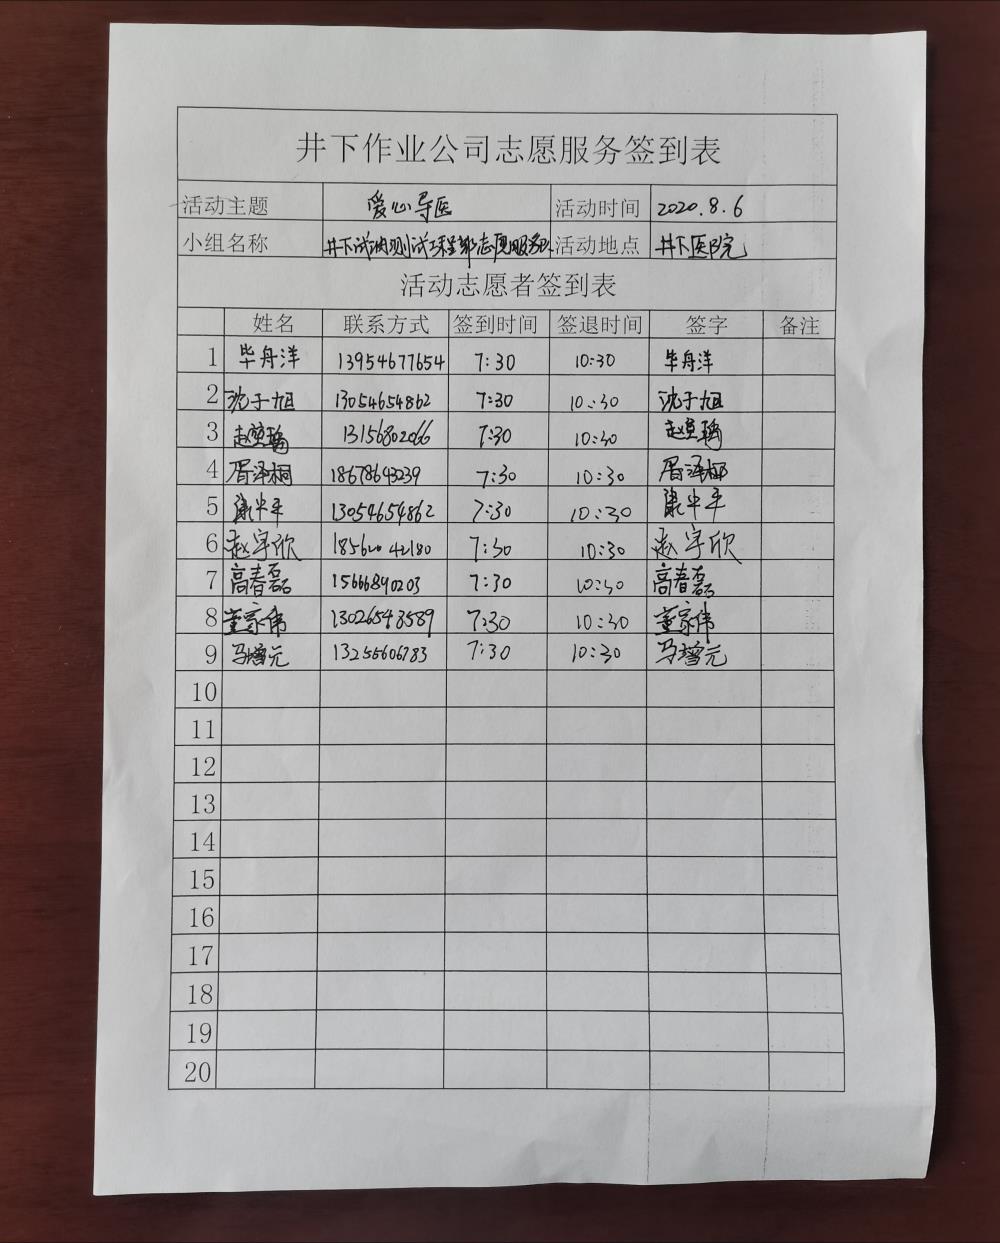 井下作业公司志愿服务签到表
活动主题 爱心导医 活动时间 2020.8.6
小组名称 井下试油测试工程部志愿服务队 活动地点 井下医院
活动志愿者签到表
姓名 联系方式 签到时间 签退时间 签字 备注
1 毕舟洋 13954677654 7:30 10:30 毕舟洋
2 沈于旭 13054654862 7:30 10:30 沈于旭
3 13156802066 7:30 10:30
4 胥泽桐 18678643239 7:30 10:30 胥泽桐
5 康中平 13054654862 7:30 10:30 康中平
6 赵宇欣 18562042180 7:30 10:30 赵宇欣
7 高春磊 15666890203 7:30 10:30 高春磊
8 董宗伟 13026543589 7:30 10:30 董宗伟
9 马增元 13255606783 7:30 10:30 马增元
10
11
12
13
14
15
16
17
18
19
20